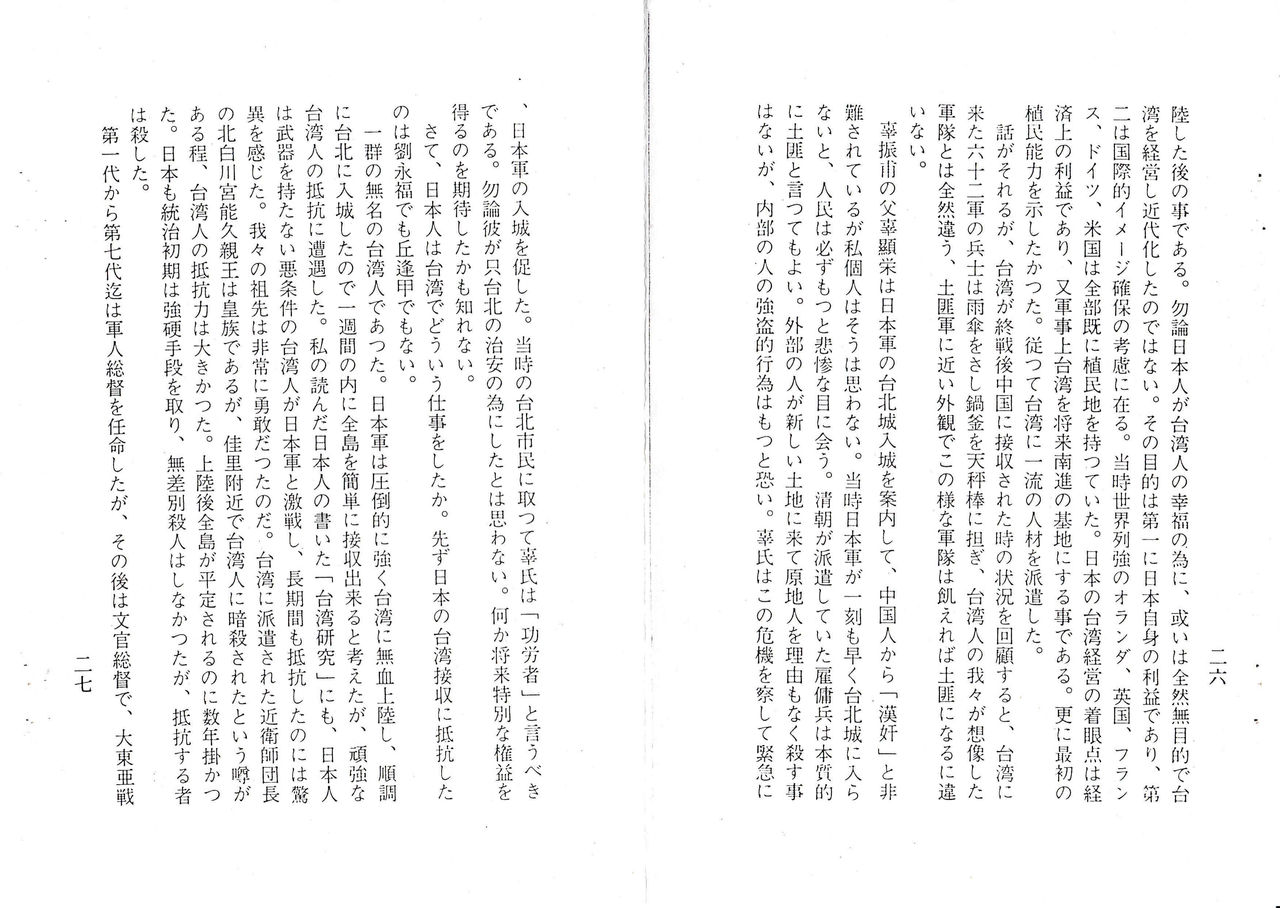 二六
陸した後の事である。勿論日本人が台湾人の幸福の為に、或いは全然無目的で台
湾を経営し近代化したのではない。その目的は第一に日本自身の利益であり、第
二は国際的イメージ確保の考慮に在る。当時世界列強のオランダ、英国、フラン
ス、ドイツ、米国は全部既に植民地を持つていた。日本の台湾経営の着眼点は経
済上の利益であり、又軍事上台湾を将来南進の基地にする事である。更に最初の
植民能力を示したかつた。従つて台湾に一流の人材を派遣した。
話がそれるが、台湾が終戦後中国に接収された時の状況を回顧すると、台湾に
来た六十二軍の兵士は雨傘をさし鍋釜を天秤棒に担ぎ、台湾人の我々が想像した
軍隊とは全然違う、土匪軍に近い外観でこの様な軍隊は飢えれば土匪になるに違
いない。
辜振甫の父辜顯栄は日本軍の台北城入城を案内して、中国人から「漢奸」と非
難されているが私個人はそうは思わない。当時日本軍が一刻も早く台北城に入ら
ないと、人民は必ずもつと悲惨な目に会う。清朝が派遣していた雇傭兵は本質的
に土匪と言つてもよい。外部の人が新しい土地に来て原地人を理由もなく殺す事
はないが、内部の人の強盗的行為はもつと恐い。辜氏はこの危機を察して緊急に
、日本軍の入城を促した。当時の台北市民に取つて辜氏は「功労者」と言うべき
である。勿論彼が只台北の治安の為にしたとは思わない。何か将来特別な権益を
得るのを期待したかも知れない。
さて、日本人は台湾でどういう仕事をしたか。先ず日本の台湾接収に抵抗した
のは劉永福でも丘逢甲でもない。
一群の無名の台湾人であつた。日本軍は圧倒的に強く台湾に無血上陸し、順調
に台北に入城したので一週間の内に全島を簡単に接収出来ると考えたが、頑強な
台湾人の抵抗に遭遇した。私の読んだ日本人の書いた「台湾研究」にも、日本人
は武器を持たない悪条件の台湾人が日本軍と激戦し、長期間も抵抗したのには驚
異を感じた。我々の祖先は非常に勇敢だつたのだ。台湾に派遣された近衛師団長
の北白川宮能久親王は皇族であるが、佳里附近で台湾人に暗殺されたという噂が
ある程、台湾人の抵抗力は大きかつた。上陸後全島が平定されるのに数年掛かつ
た。日本も統治初期は強硬手段を取り、無差別殺人はしなかつたが、抵抗する者
は殺した。
第一代から第七代迄は軍人総督を任命したが、その後は文官総督で、大東亜戦
二七